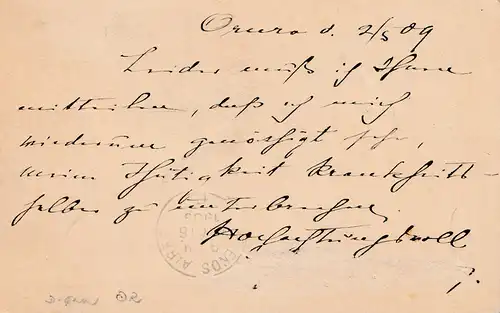 Oruro d. 2/5 09
Leider muß ich Ihnen
mitteilen, daß ich mich
wiederum genöthigt sehe,
meine Thätigkeit krankheits-
halber zu unterbrechen.
Hochachtungsvoll
ENOS AIRES